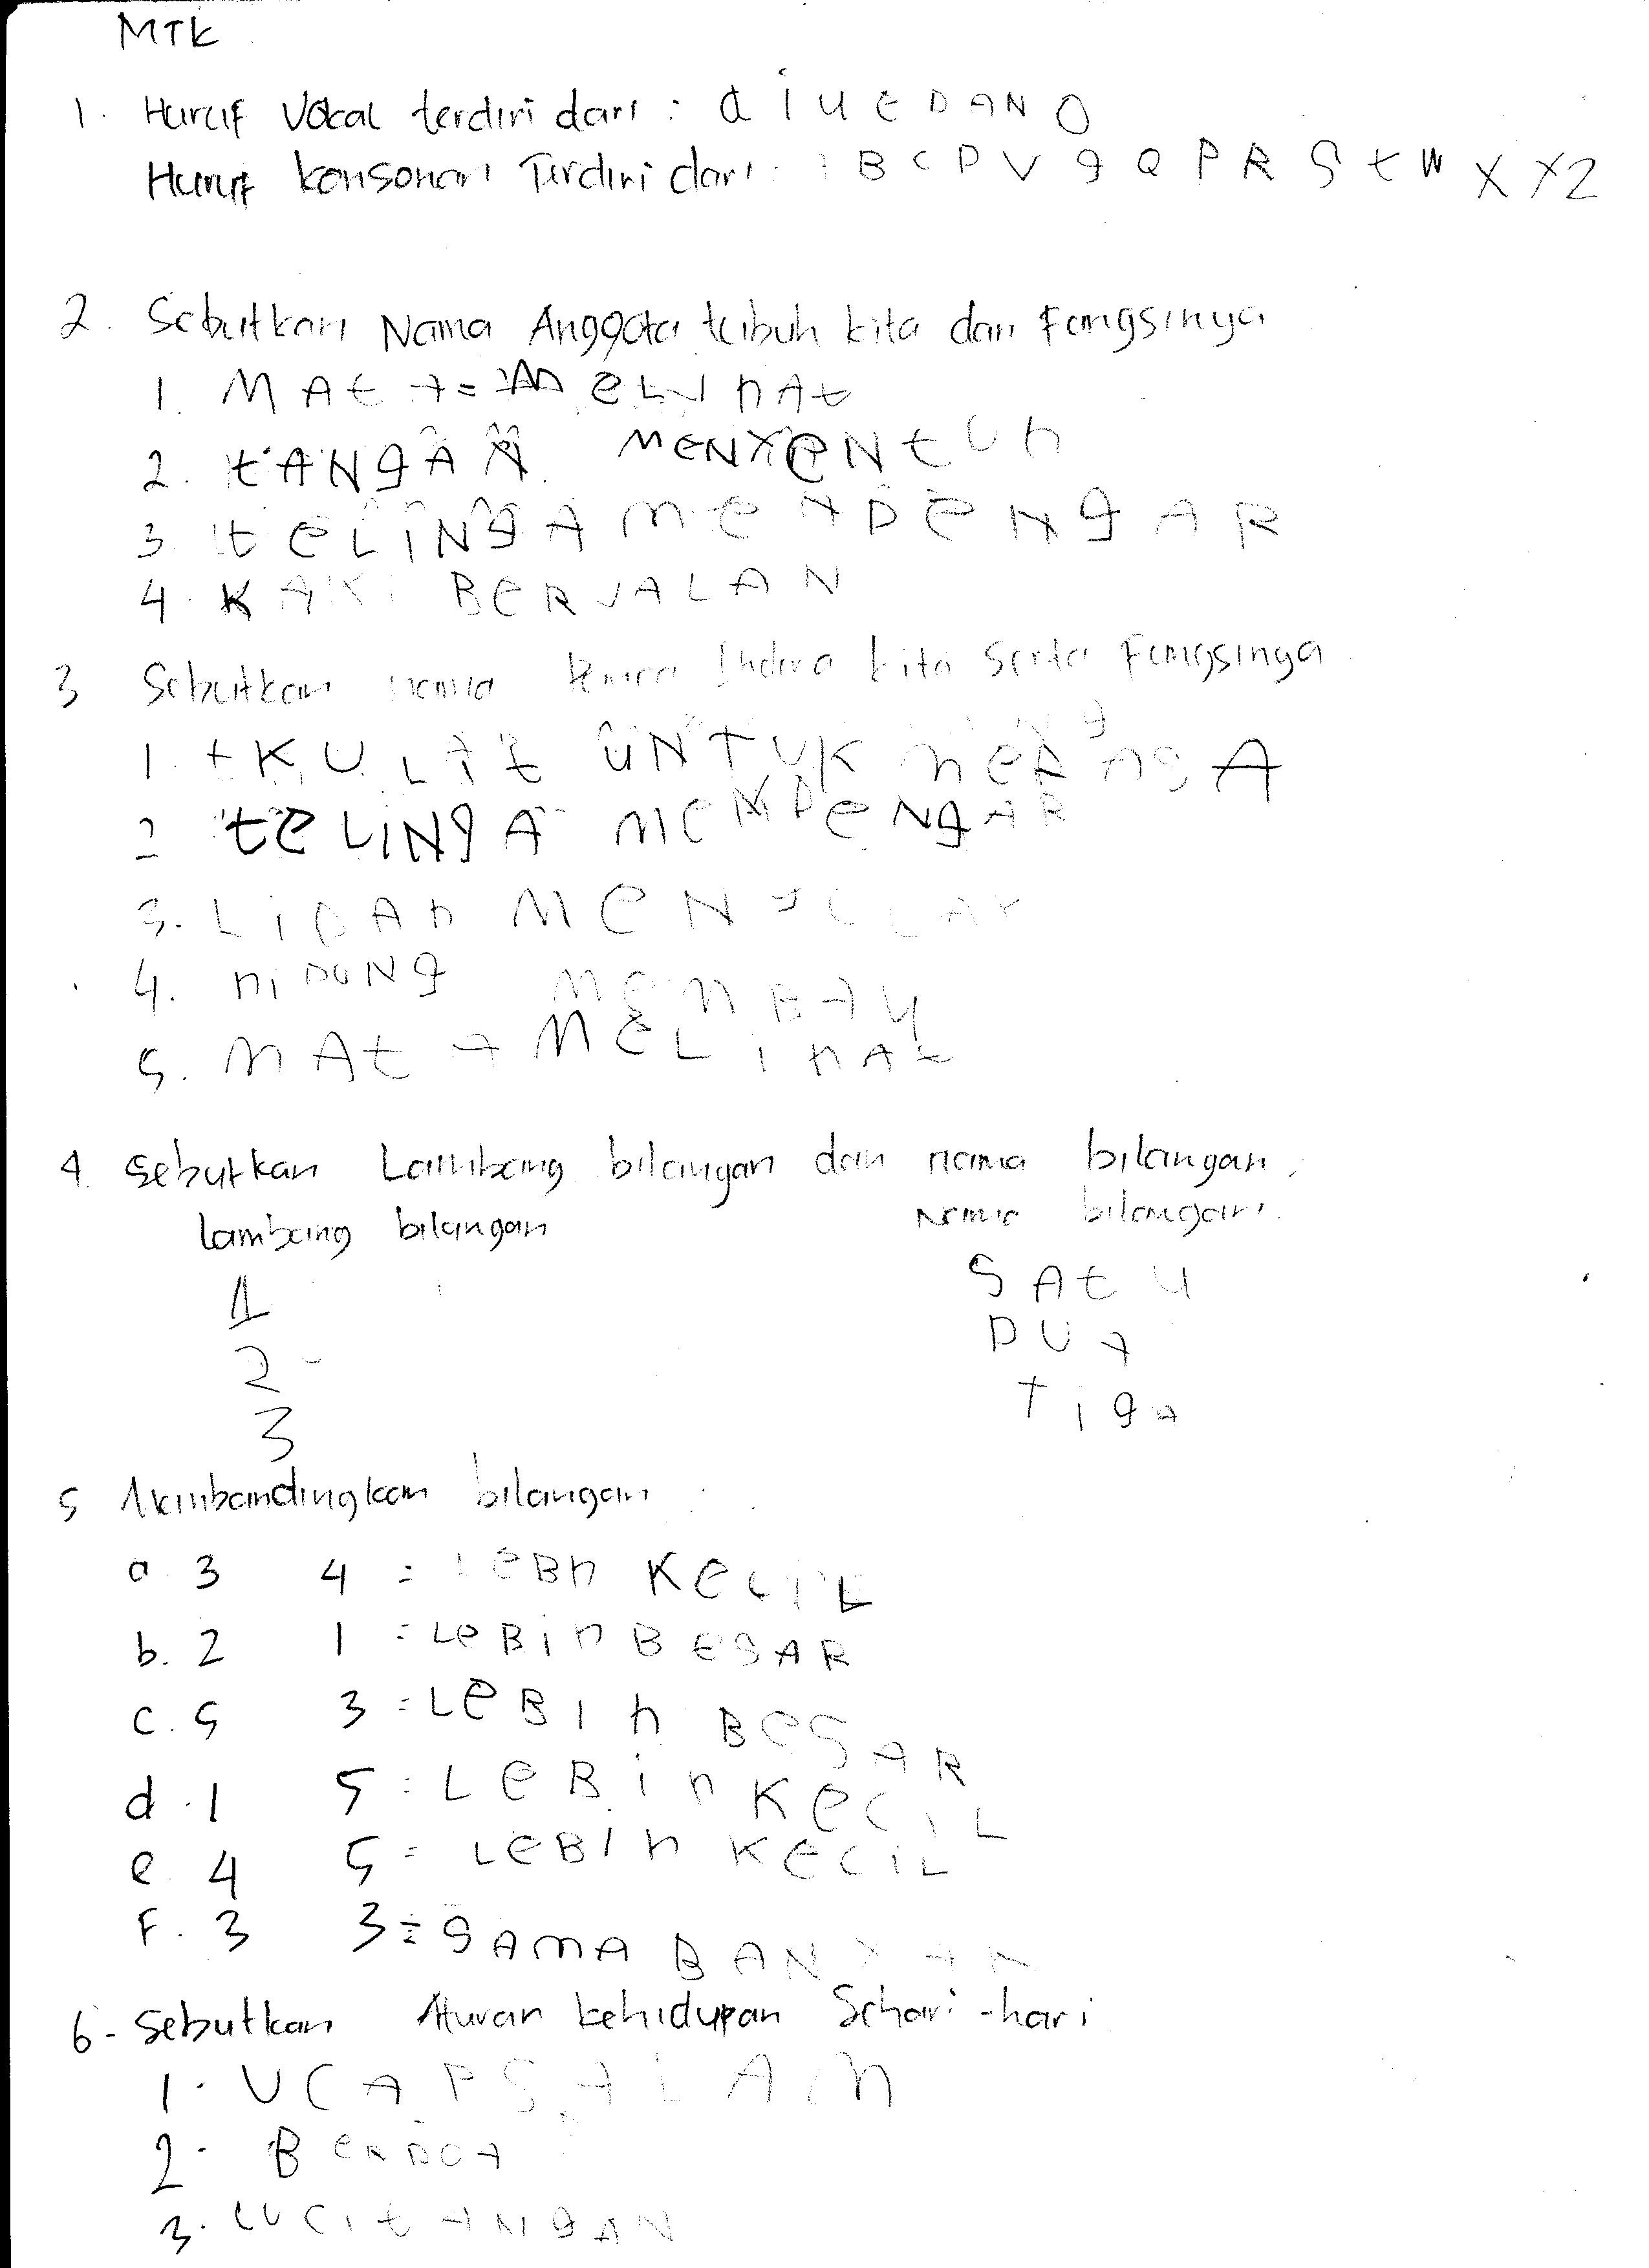 MTK
1. Huruf Vokal terdiri dari : a i u e DAN O
Huruf konsonan Terdiri dari : B C P V g Q P R S t W X Y Z
2. Sebutkan Nama Anggota tubuh kita dan Fungsinya
1. MAtA = MeLihAt
2. tANgAN MENYENtUh
3. teLiNgA meNDeNgAR
4. KAKi BERJALAN
3 Sebutkan nama Panca Indera kita Serta Fungsinya
1. KULit UNTUK MERASA
2 teLiNgA MENDeNgAR
3. LiDAh MENgeCAP
4. hiDUNg MEMBAU
5. MAtA MELihAt
4 Sebutkan Lambang bilangan dan nama bilangan.
lambang bilangan Nama bilangan.
1 SAtU
2 DUA
3 TigA
5 Membandingkan bilangan
a. 3 4 = LeBh KeCiL
b. 2 1 = LeBih BESAR
c. 5 3 = LeBih BeSAR
d. 1 5 : LeBih KeCiL
e. 4 5 = LEBIh KECiL
F. 3 3 = SAMA BANYAK
6 - Sebutkan Aturan kehidupan Sehari-hari
1. UCAP SALAM
2. BERDOA
3. CUCi tANgAN